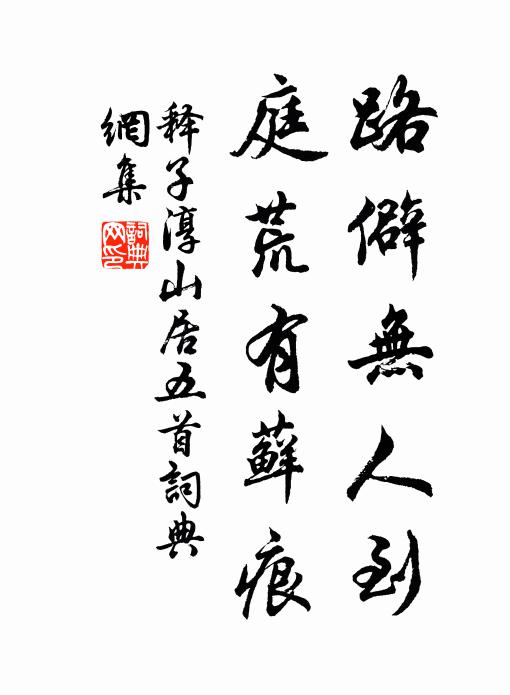 路僻無人到
庭荒有蘚痕
释子淳山居五首詞典
網集
詞典
网印